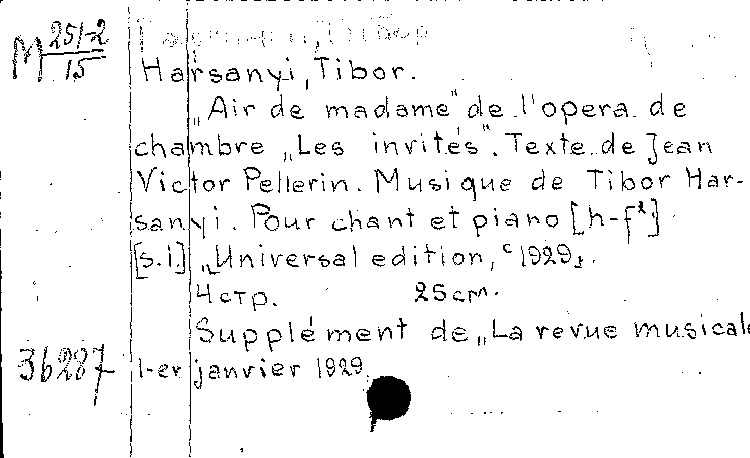 M 251-2
15
Harsanyi, Tibor.
„Air de madame" de l'opera de
chambre „Les invités". Texte de Jean
Victor Pellerin. Musique de Tibor Har-
sanyi. Pour chant et piano [h-f²]
[s.i.] „Universal edition, ᶜ1929„.
4 стр. 25 см.
Supplément de „La revue musicale
36287 1-er janvier 1929.